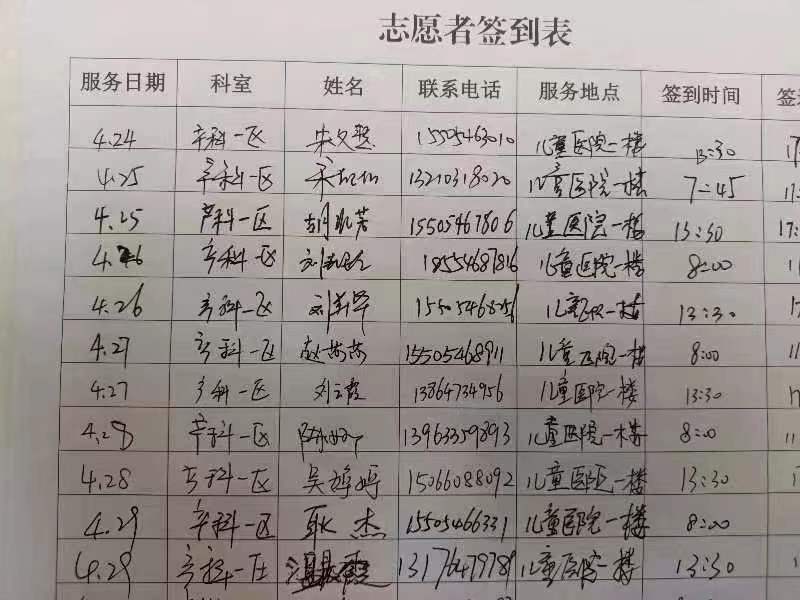 志愿者签到表
服务日期 科室 姓名 联系电话 服务地点 签到时间 签
4.24 产科一区 15505463010 儿童医院一楼 13:30 17
4.25 产科一区 13210318020 儿童医院一楼 7:45 11
4.25 产科一区 15505467806 儿童医院一楼 13:30 17:
4.26 产科一区 18554687816 儿童医院一楼 8:00 11
4.26 产科一区 儿童医院一楼 13:30 17
4.27 产科一区 赵芳芳 15505468911 儿童医院一楼 8:00 11
4.27 产科一区 刘云霞 13864734956 儿童医院一楼 13:30
4.28 产科一区 13963359893 儿童医院一楼 8:00 11
4.28 产科一区 吴婷婷 15066088092 儿童医院一楼 13:30
4.29 产科一区 耿杰 15505466331 儿童医院一楼 8:00
4.29 产科一区 13176479789 儿童医院一楼 13:30